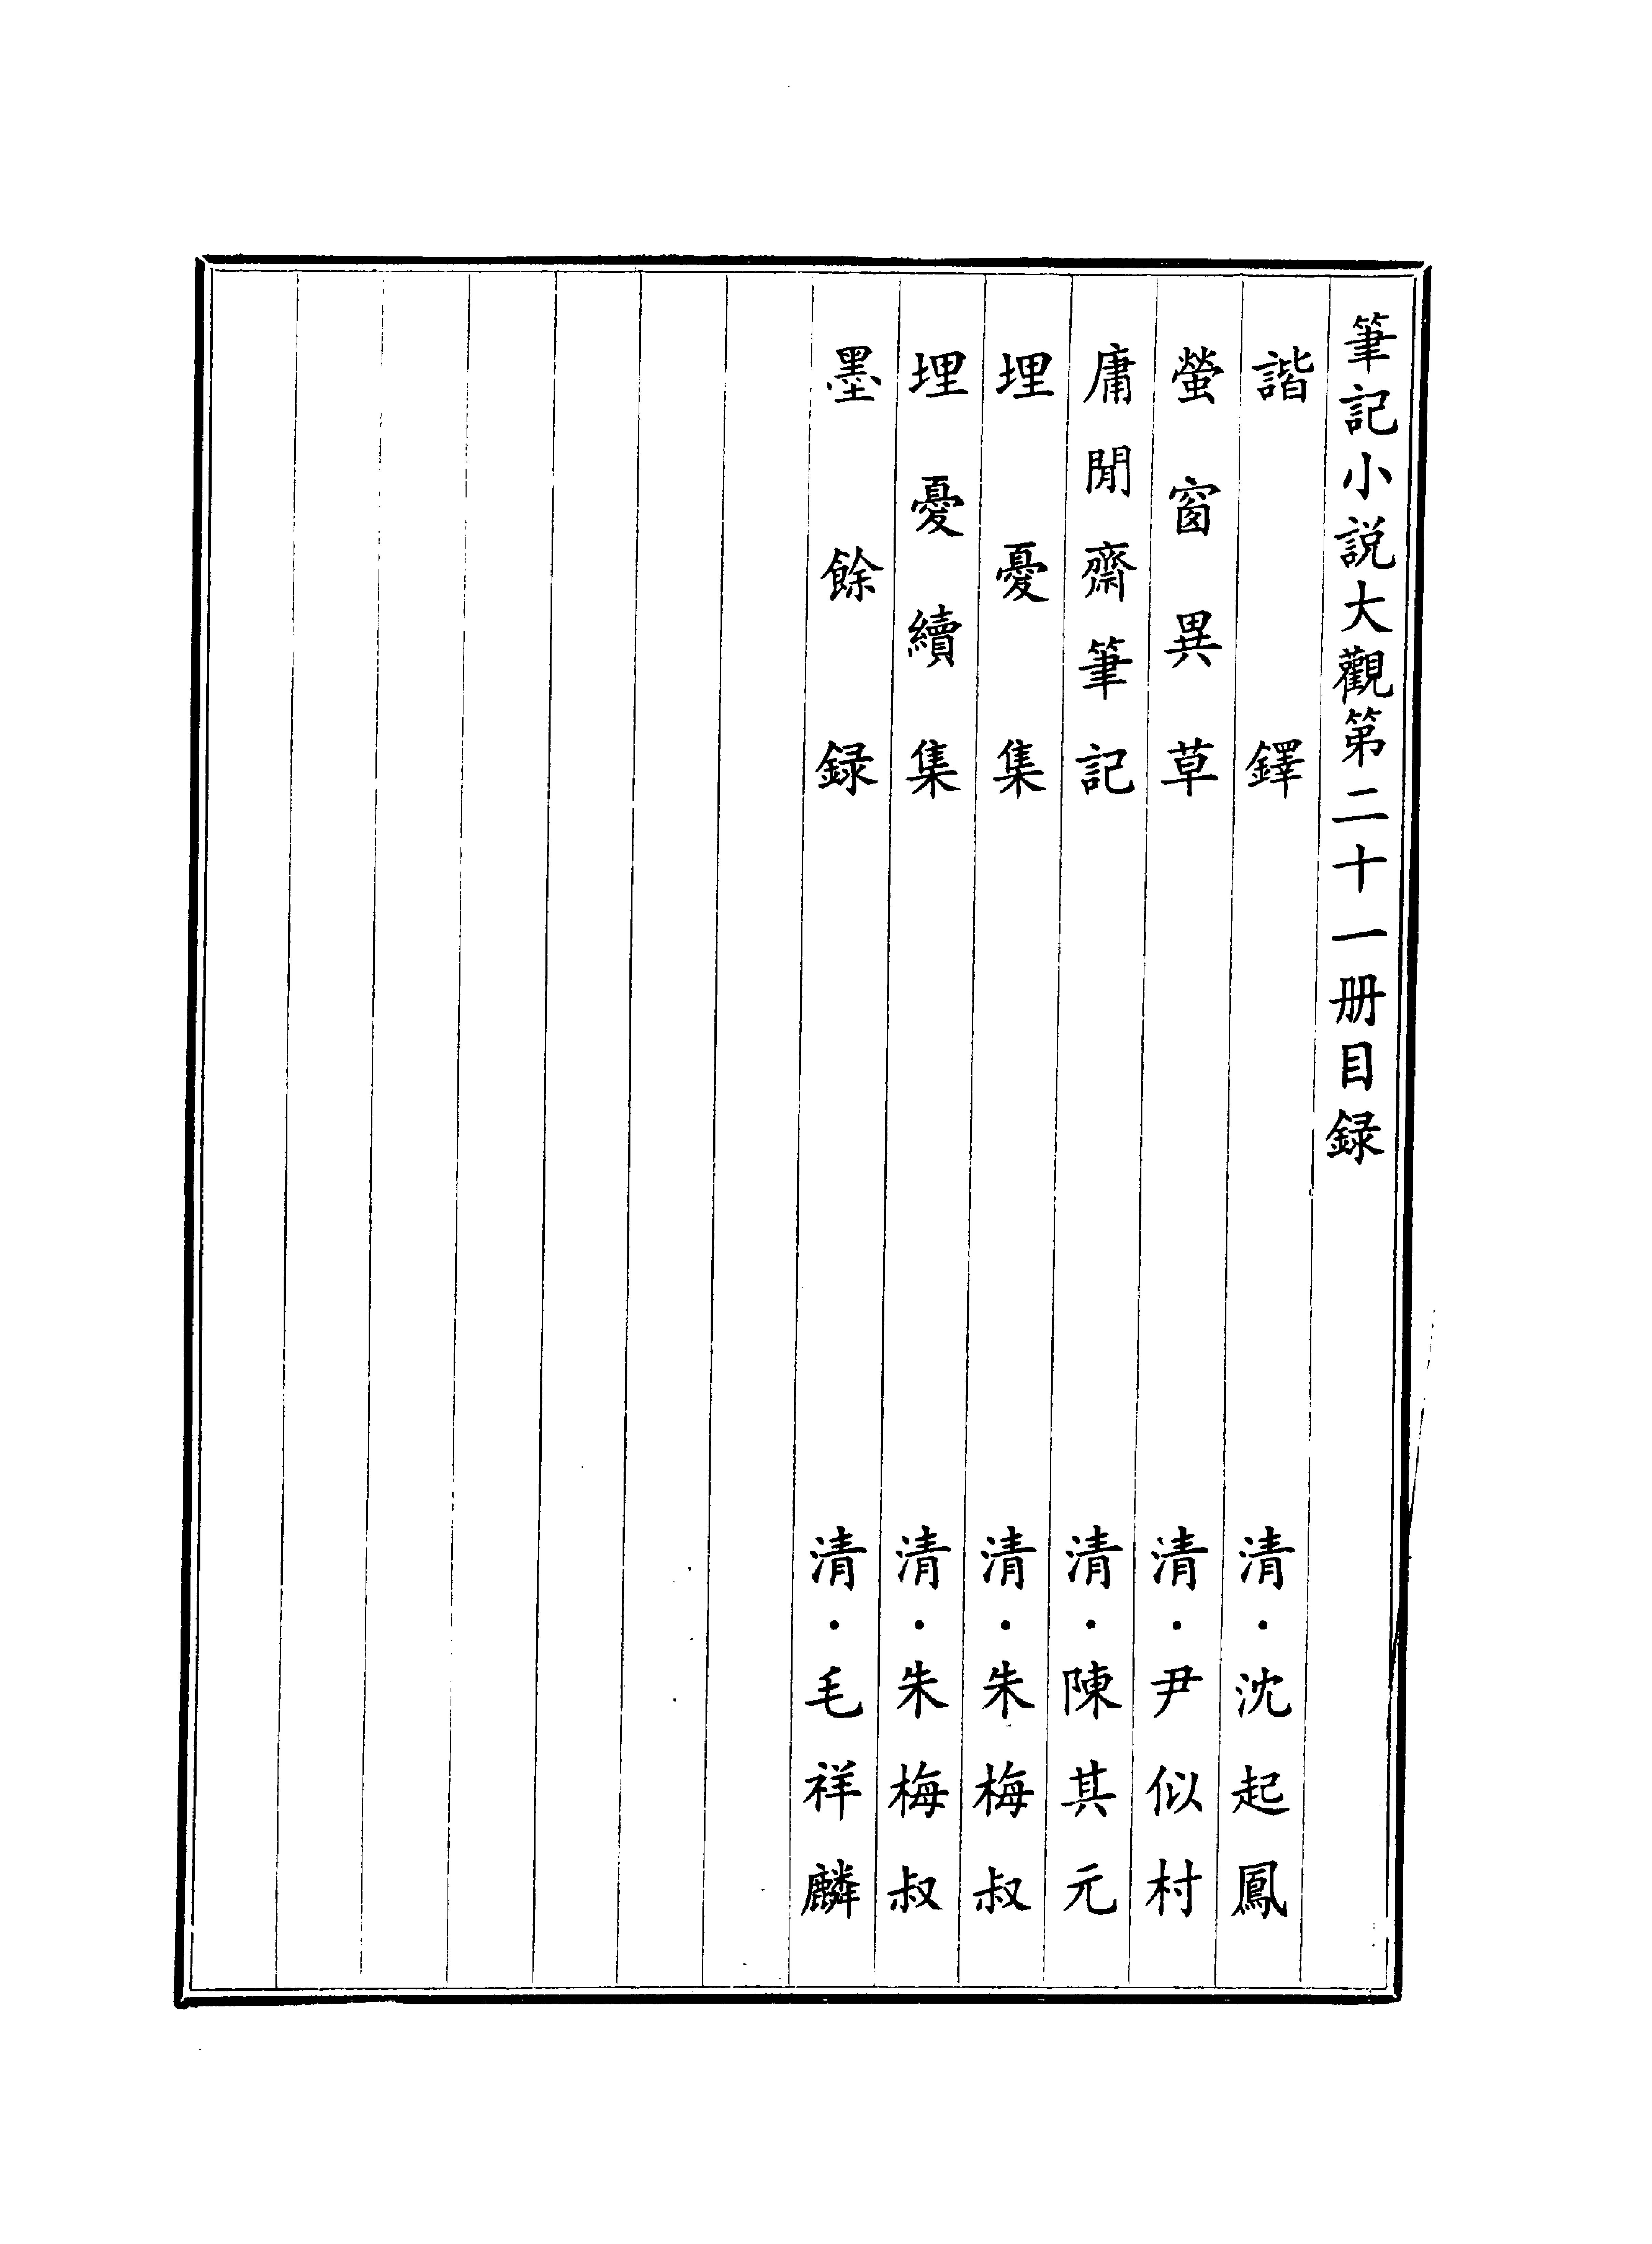 筆記小説大觀第二十一册目録
諧鐸 清·沈起鳳
螢窗異草 清·尹似村
庸閒齋筆記 清·陳其元
埋憂集 清·朱梅叔
埋憂續集 清·朱梅叔
墨餘録 清·毛祥麟